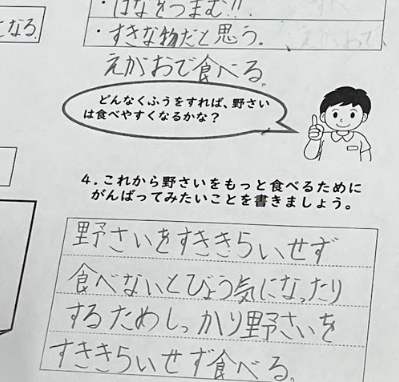 ・はなをつまむ!!
となる.
・すきな物だと思う.
えがおで食べる.
どんなくふうをすれば、野さい
は食べやすくなるかな?
4.これから野さいをもっと食べるために
がんばってみたいことを書きましょう。
野さいをすききらいせず
食べないとびょう気になったり
するためしっかり野さいを
すききらいせず食べる.